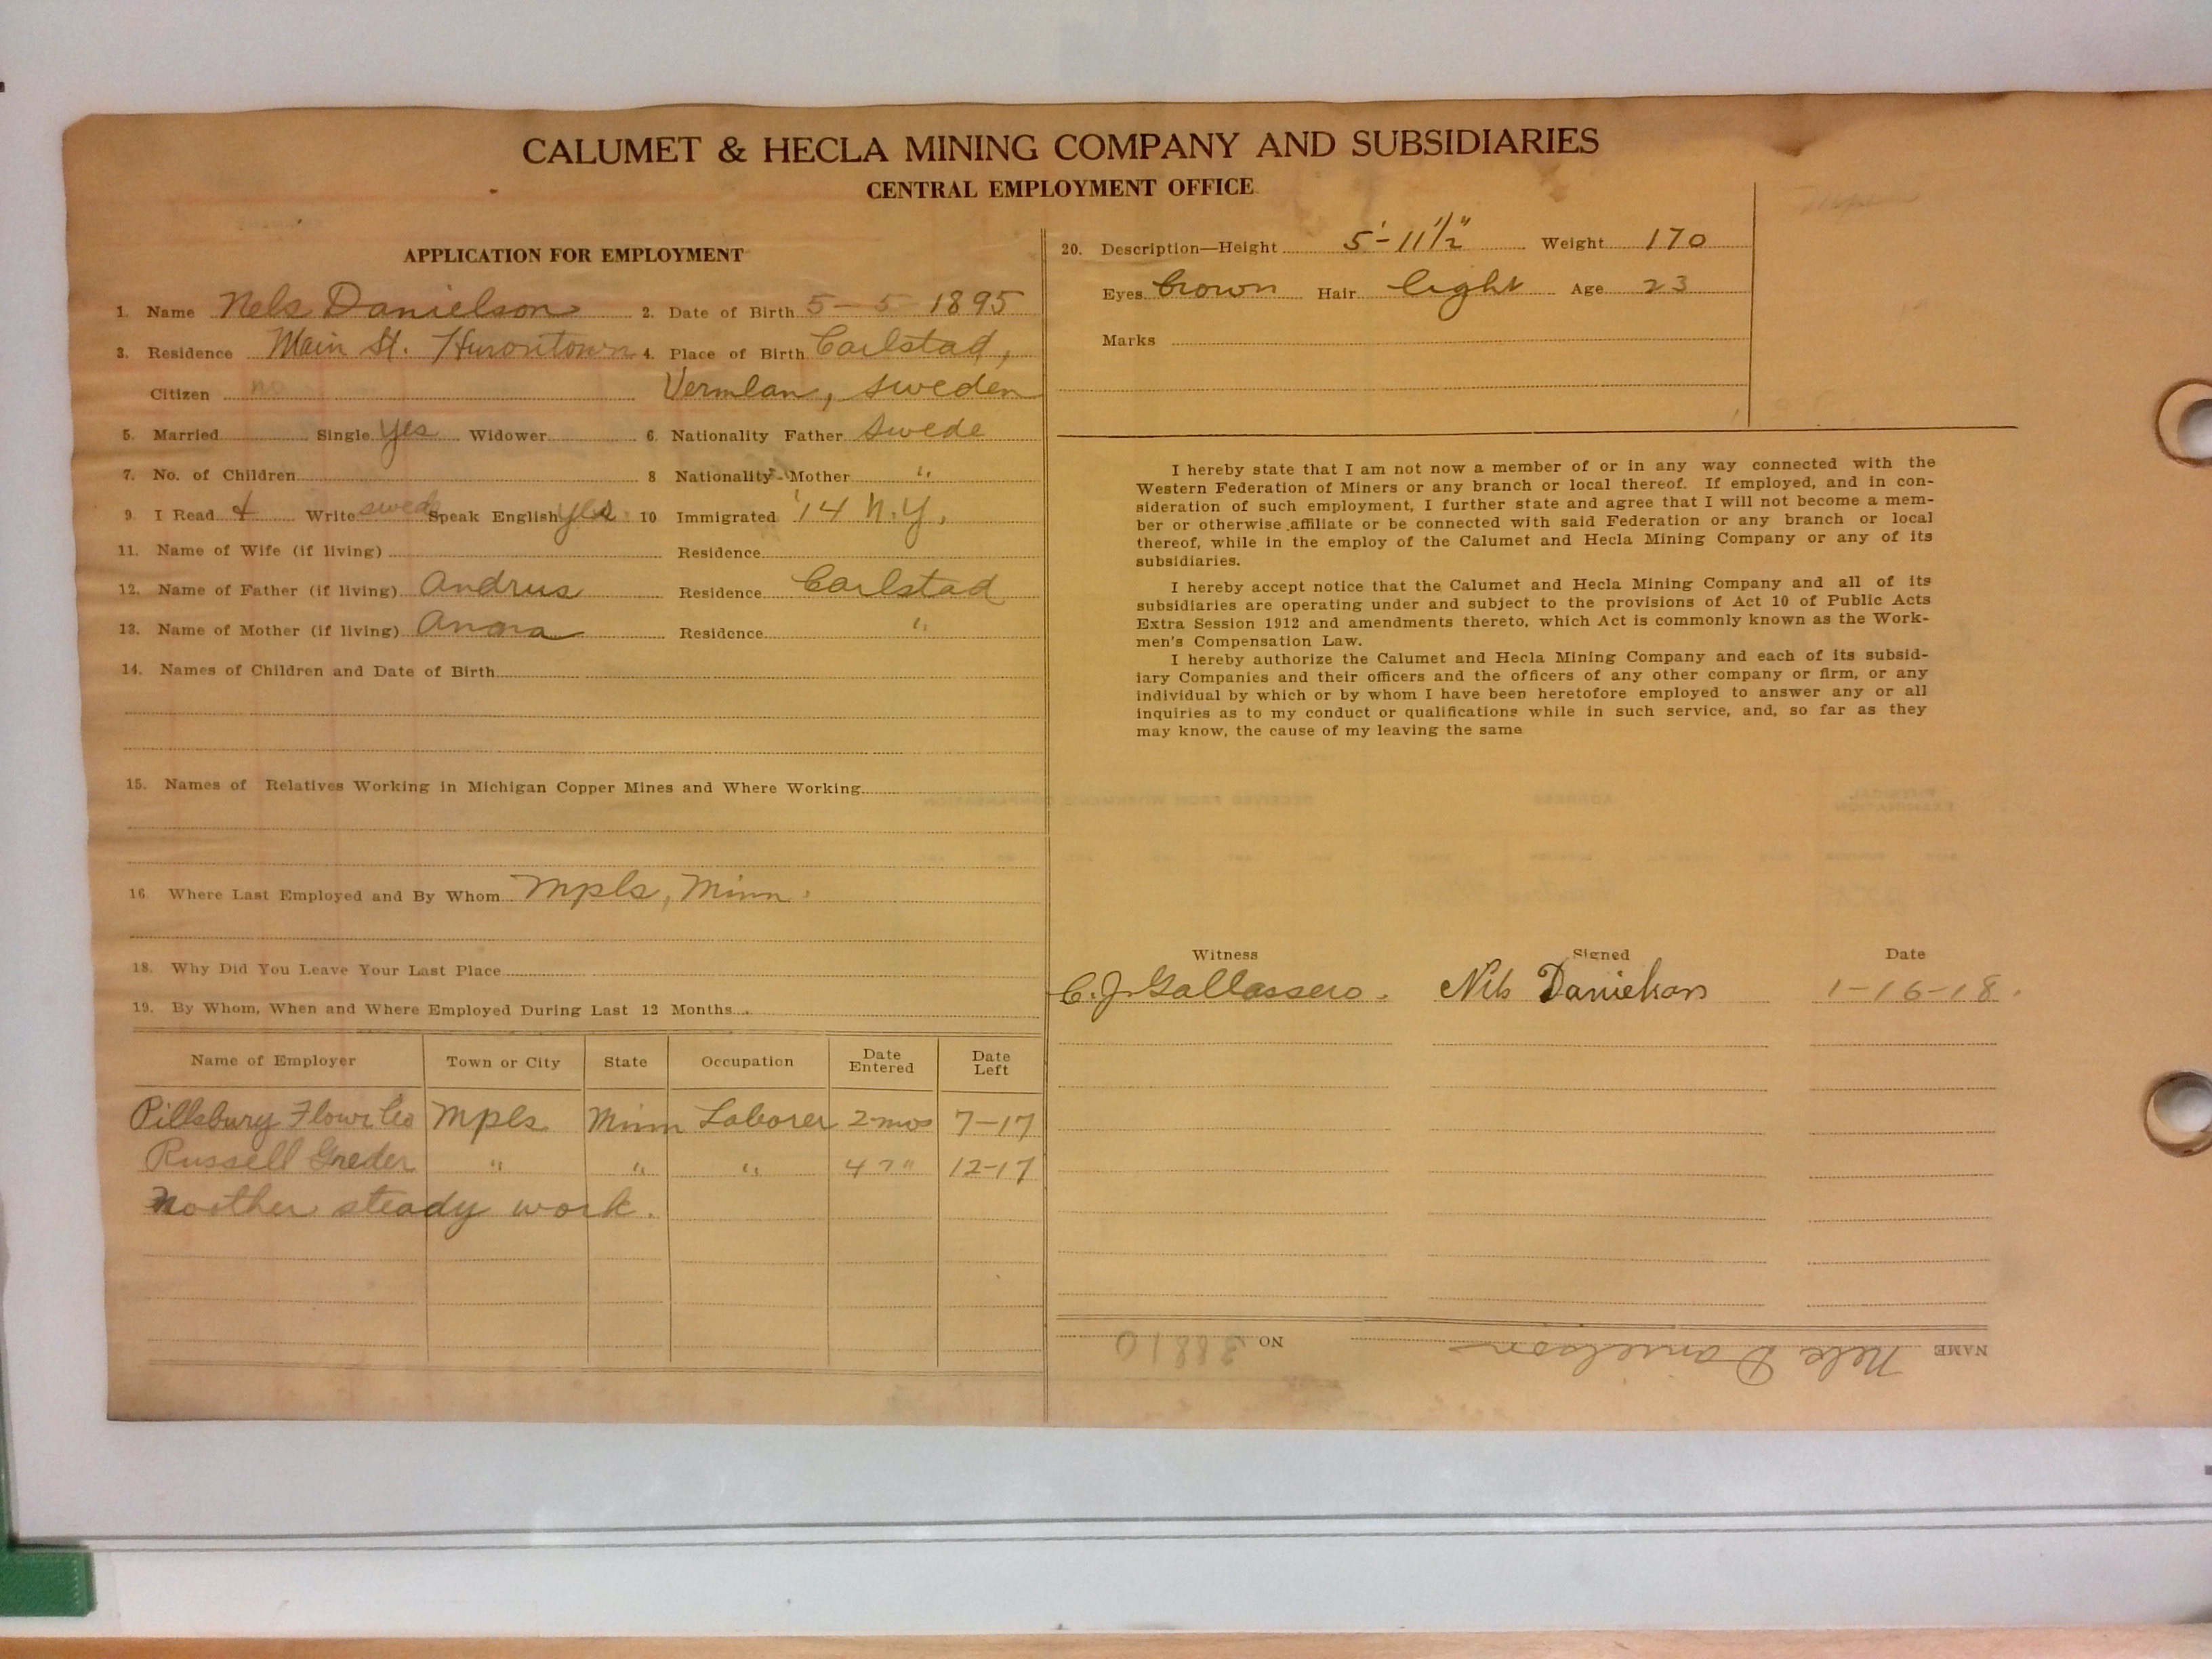 CALUMET & HECLA MINING COMPANY AND SUBSIDIARIES
CENTRAL EMPLOYMENT OFFICE
APPLICATION FOR EMPLOYMENT
1. Name Nels Danielson 2. Date of Birth 5-5 1895
3. Residence Main St. Hurontown 4. Place of Birth Carlstad,
Citizen no Vermlan, Sweden
5. Married Single Yes Widower 6. Nationality Father Swede
7. No. of Children 8 Nationality Mother "
9. I Read & Write swed Speak English yes 10 Immigrated '14 N.Y.
11. Name of Wife (if living) Residence
12. Name of Father (if living) Andrus Residence Carlstad
13. Name of Mother (if living) Anna Residence "
14. Names of Children and Date of Birth
15. Names of Relatives Working in Michigan Copper Mines and Where Working
16 Where Last Employed and By Whom Mpls, Minn.
18. Why Did You Leave Your Last Place
19. By Whom, When and Where Employed During Last 12 Months
Name of Employer Town or City State Occupation Date Entered Date Left
Pillsbury Flour Co Mpls Minn Laborer 2 mos 7-17
Russell Greder " " " 4 12-17
No other steady work.
20. Description—Height 5'-11 1/2" Weight 170
Eyes brown Hair light Age 23
Marks
I hereby state that I am not now a member of or in any way connected with the
Western Federation of Miners or any branch or local thereof. If employed, and in con-
sideration of such employment, I further state and agree that I will not become a mem-
ber or otherwise affiliate or be connected with said Federation or any branch or local
thereof, while in the employ of the Calumet and Hecla Mining Company or any of its
subsidiaries.
I hereby accept notice that the Calumet and Hecla Mining Company and all of its
subsidiaries are operating under and subject to the provisions of Act 10 of Public Acts
Extra Session 1912 and amendments thereto, which Act is commonly known as the Work-
men's Compensation Law.
I hereby authorize the Calumet and Hecla Mining Company and each of its subsid-
iary Companies and their officers and the officers of any other company or firm, or any
individual by which or by whom I have been heretofore employed to answer any or all
inquiries as to my conduct or qualifications while in such service, and, so far as they
may know, the cause of my leaving the same
Witness Signed Date
C. J. Gallassero. Nils Danielson 1-16-18.
NAME Nels Danielson NO 38810